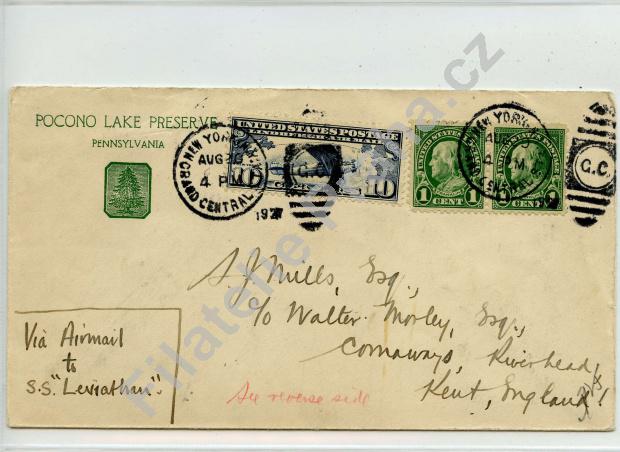 POCONO LAKE PRESERVE
PENNSYLVANIA
NEW YORK, N.Y.
AUG 26
4 P
GRAND CENTRAL
1927
UNITED STATES POSTAGE
LINDBERGH AIR MAIL
10 10
G.C.
UNITED STATES POSTAGE
1 CENT 1
CENT
NEW YORK
AUG
M
G.C.
S. J. Mills, Esq.,
c/o Walter Morley, Esq.,
Comaways, Riverhead,
Kent, England!
Via Airmail
to
S.S. "Leviathan".
See reverse side
Filatelie prama.cz